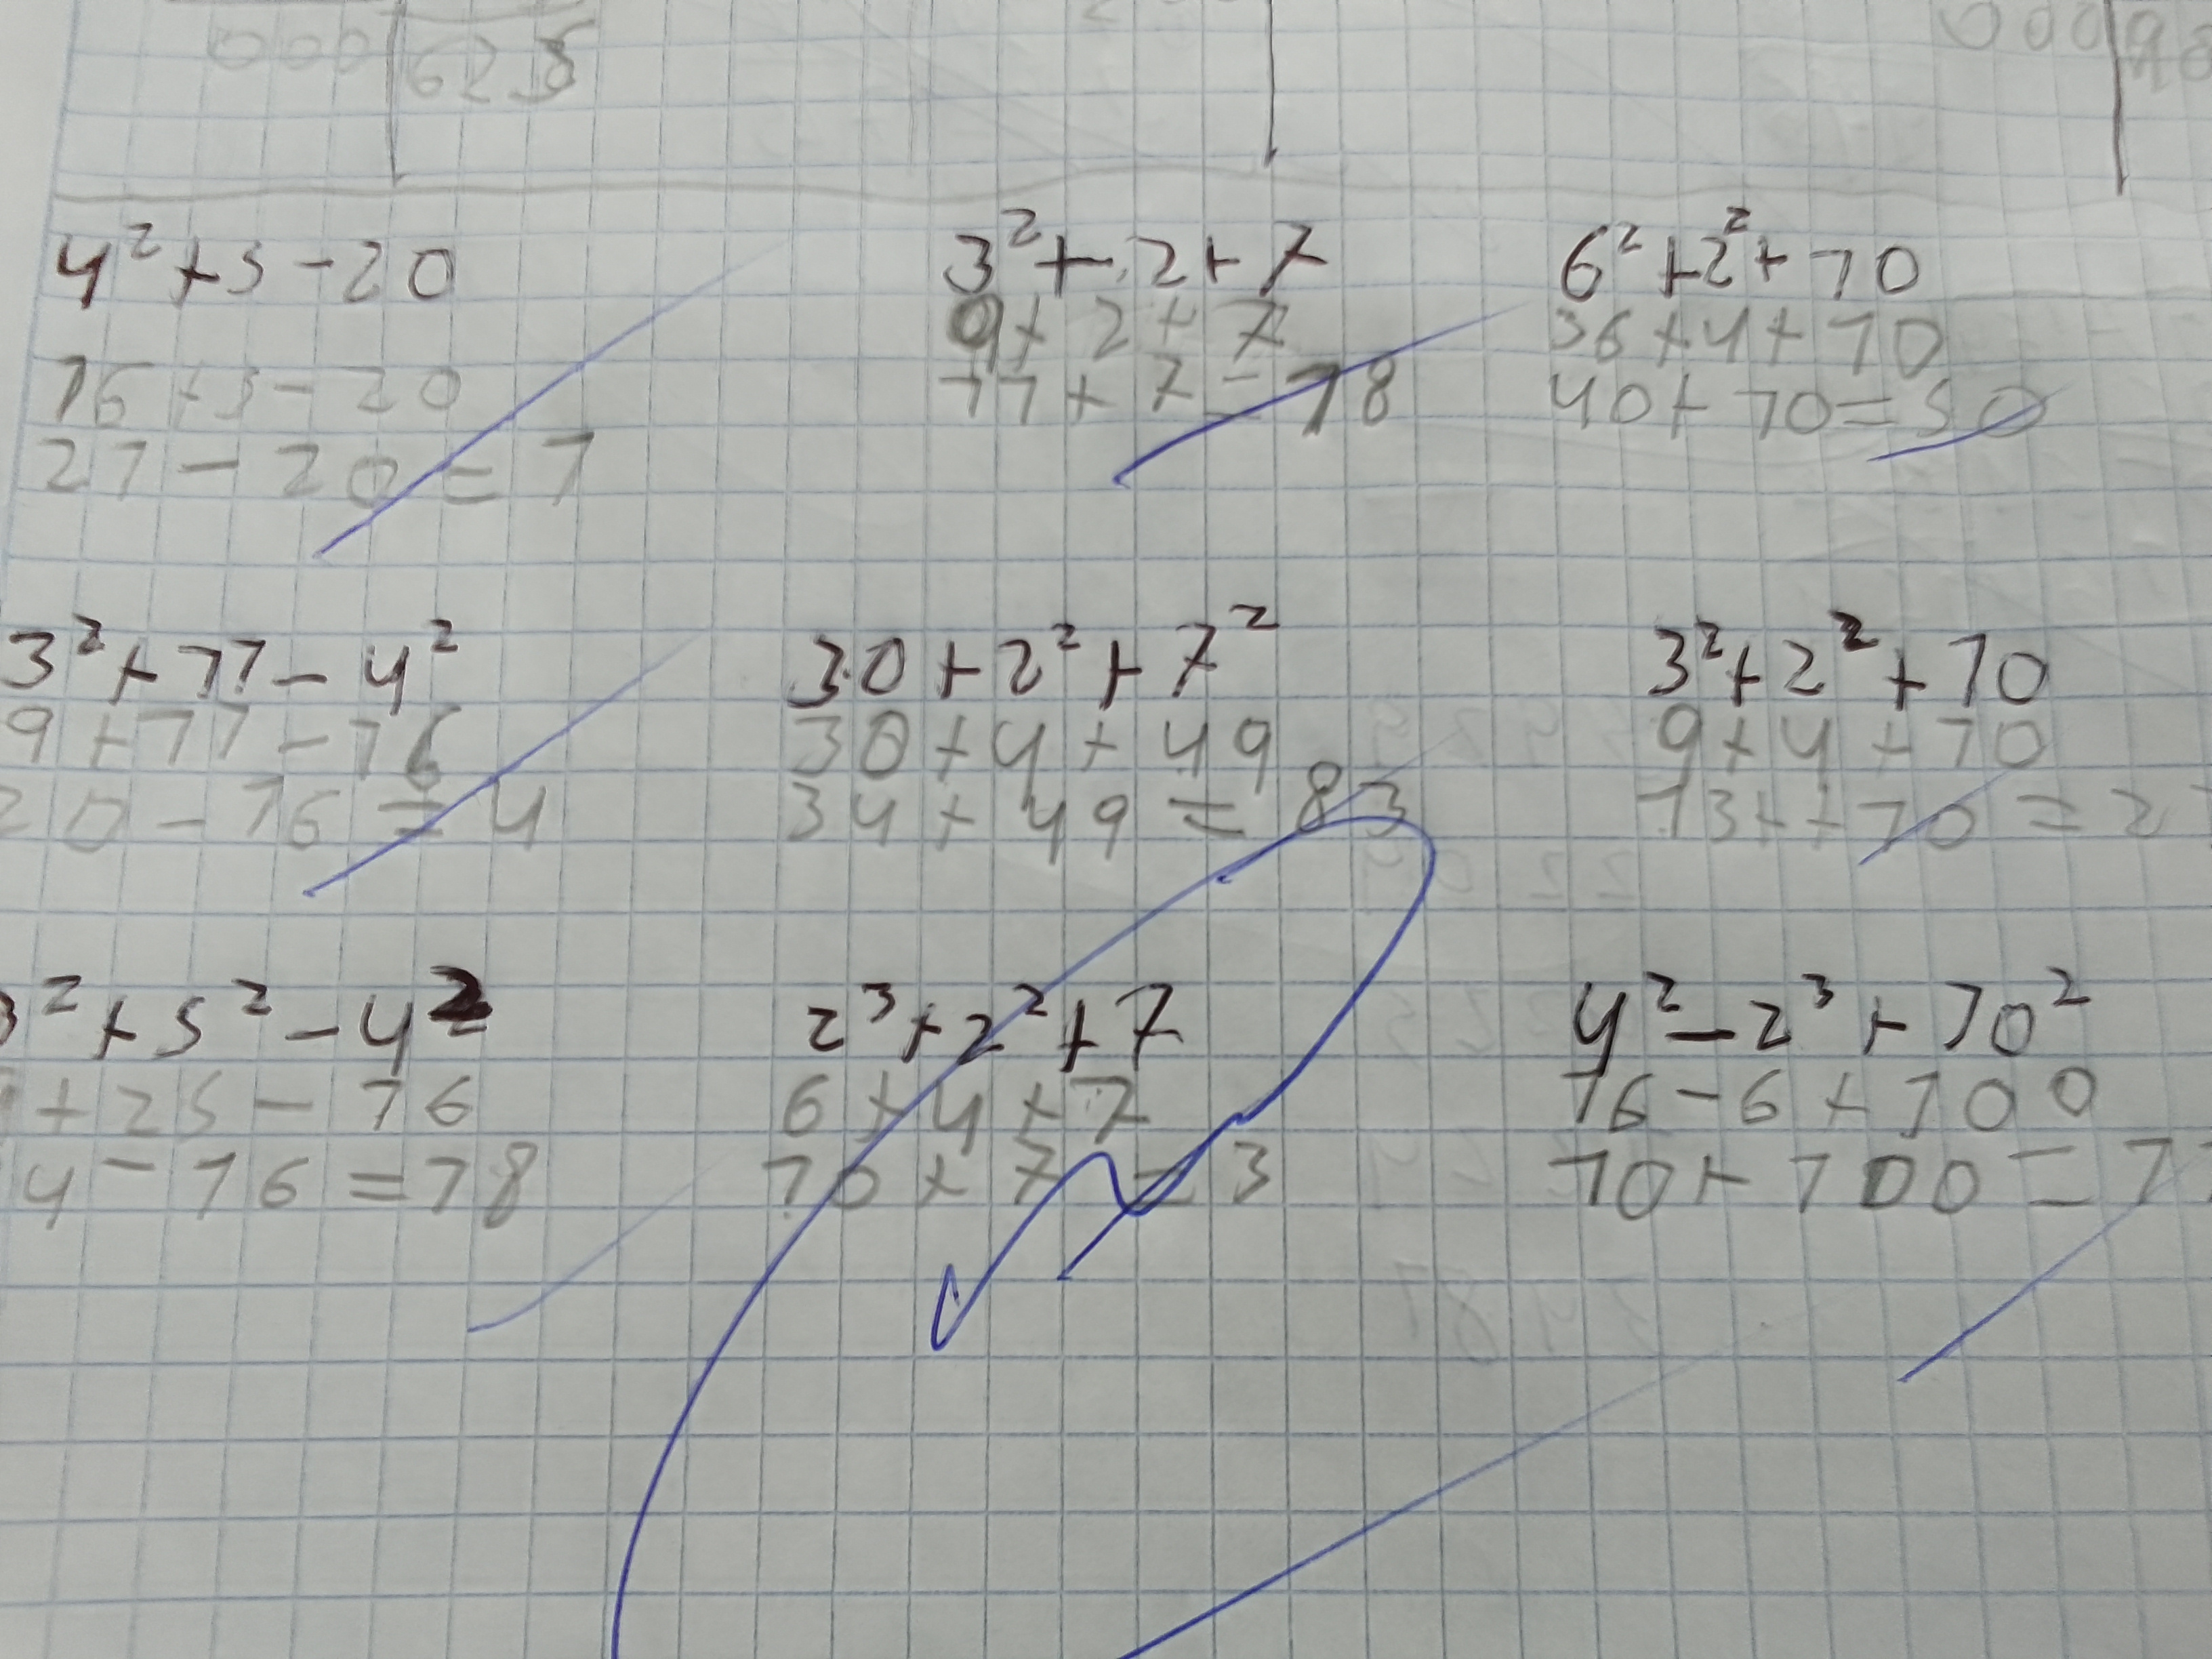 000 625
000
4²+5-20
16+5-20
21-20=1
3²+2+7
9+2+7
11+7=18
6²+2²+10
36+4+10
40+10=50
3²+11-4²
9+11-16
20-16=4
30+2²+7²
30+4+49
34+49=83
3²+2²+10
9+4+10
13++10=2
3²+5²-4²
+25-16
4-16=18
2³+2²+7
6+4+7
10+7=3
4²-2³+10²
16-6+100
10+100=11